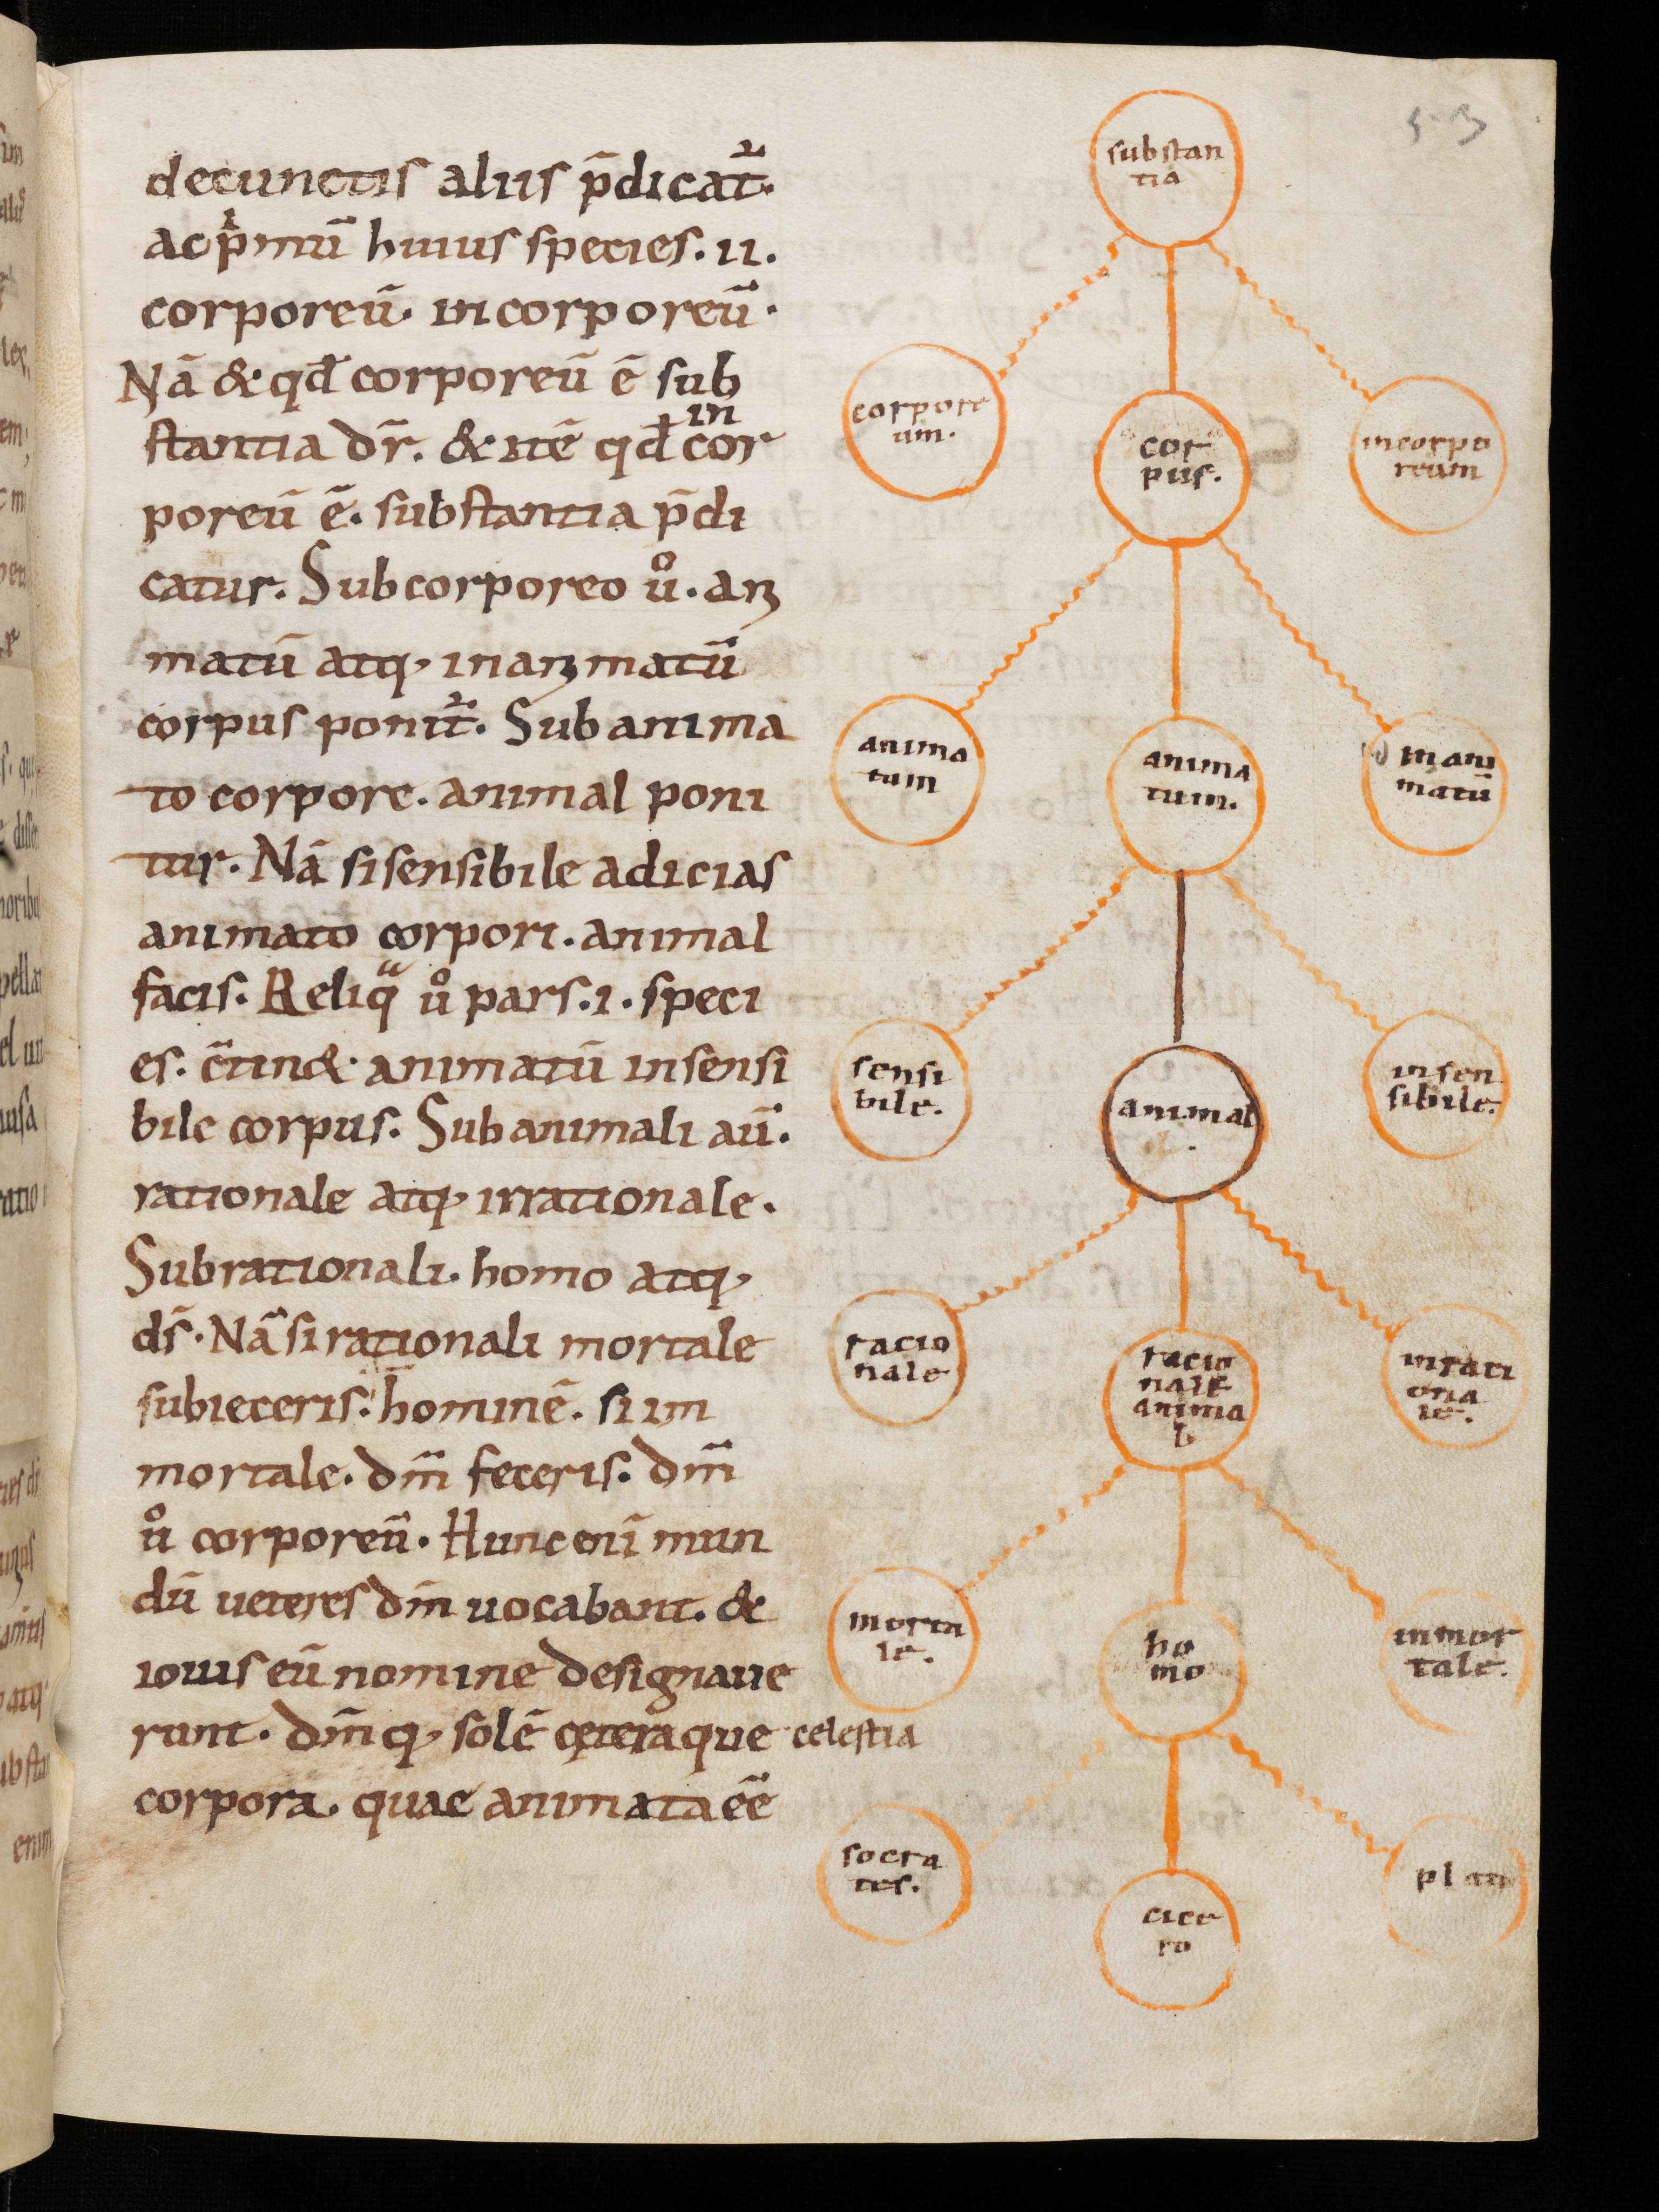 decunctis aliis p̄dicat᷑.
acpͥmū huius species. ii.
corporeū. incorporeū.
Nā & qđ corporeū ē sub
stantia dr̄. & itē qđ incor
poreū ē. substantia p̄di
catur. Subcorporeo uͦ. ani
matū atq; inanimatū
corpus ponit᷑. Subanima
to corpore. animal poni
tur. Nā sisensibile adicias
animato corpori. animal
facis. Reliqͣ uͦ pars. i. speci
es. c̄tin&. animatū insensi
bile corpus. Subanimali aū.
rationale atq; irrationale.
Subrationali. homo atq;
ds̄. Nā sirationali mortale
subieceris. hominē. si im
mortale. dm̄ feceris. dm̄
uͦ corporeū. Hunc enī mun
dū ueteres dm̄ uocabant. &
iouis eū nomine designaue
runt. dm̄q; solē cęteraque celestia
corpora. quae animata ēē
substan
tia
corpore
um.
cor
pus.
incorpo
reum
anima
tum
anima
tum.
inani
matū
sensi
bile.
animal
insen
sibile.
racio
nale
racio
nale
anima
l
inraci
ona
le.
morta
le.
ho
mo
inmor
tale.
socra
tes.
cice
ro